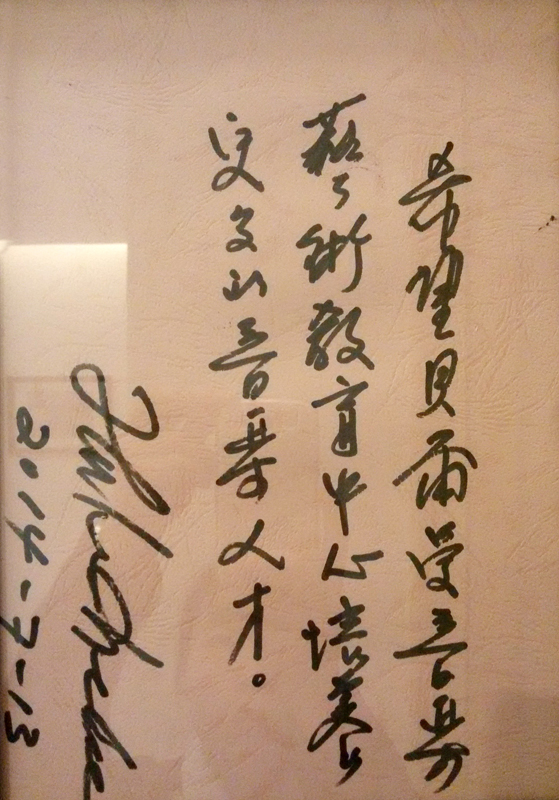 希望貝爾曼音樂
藝術教育中心培養
更多的音樂人才。
2014-7-13